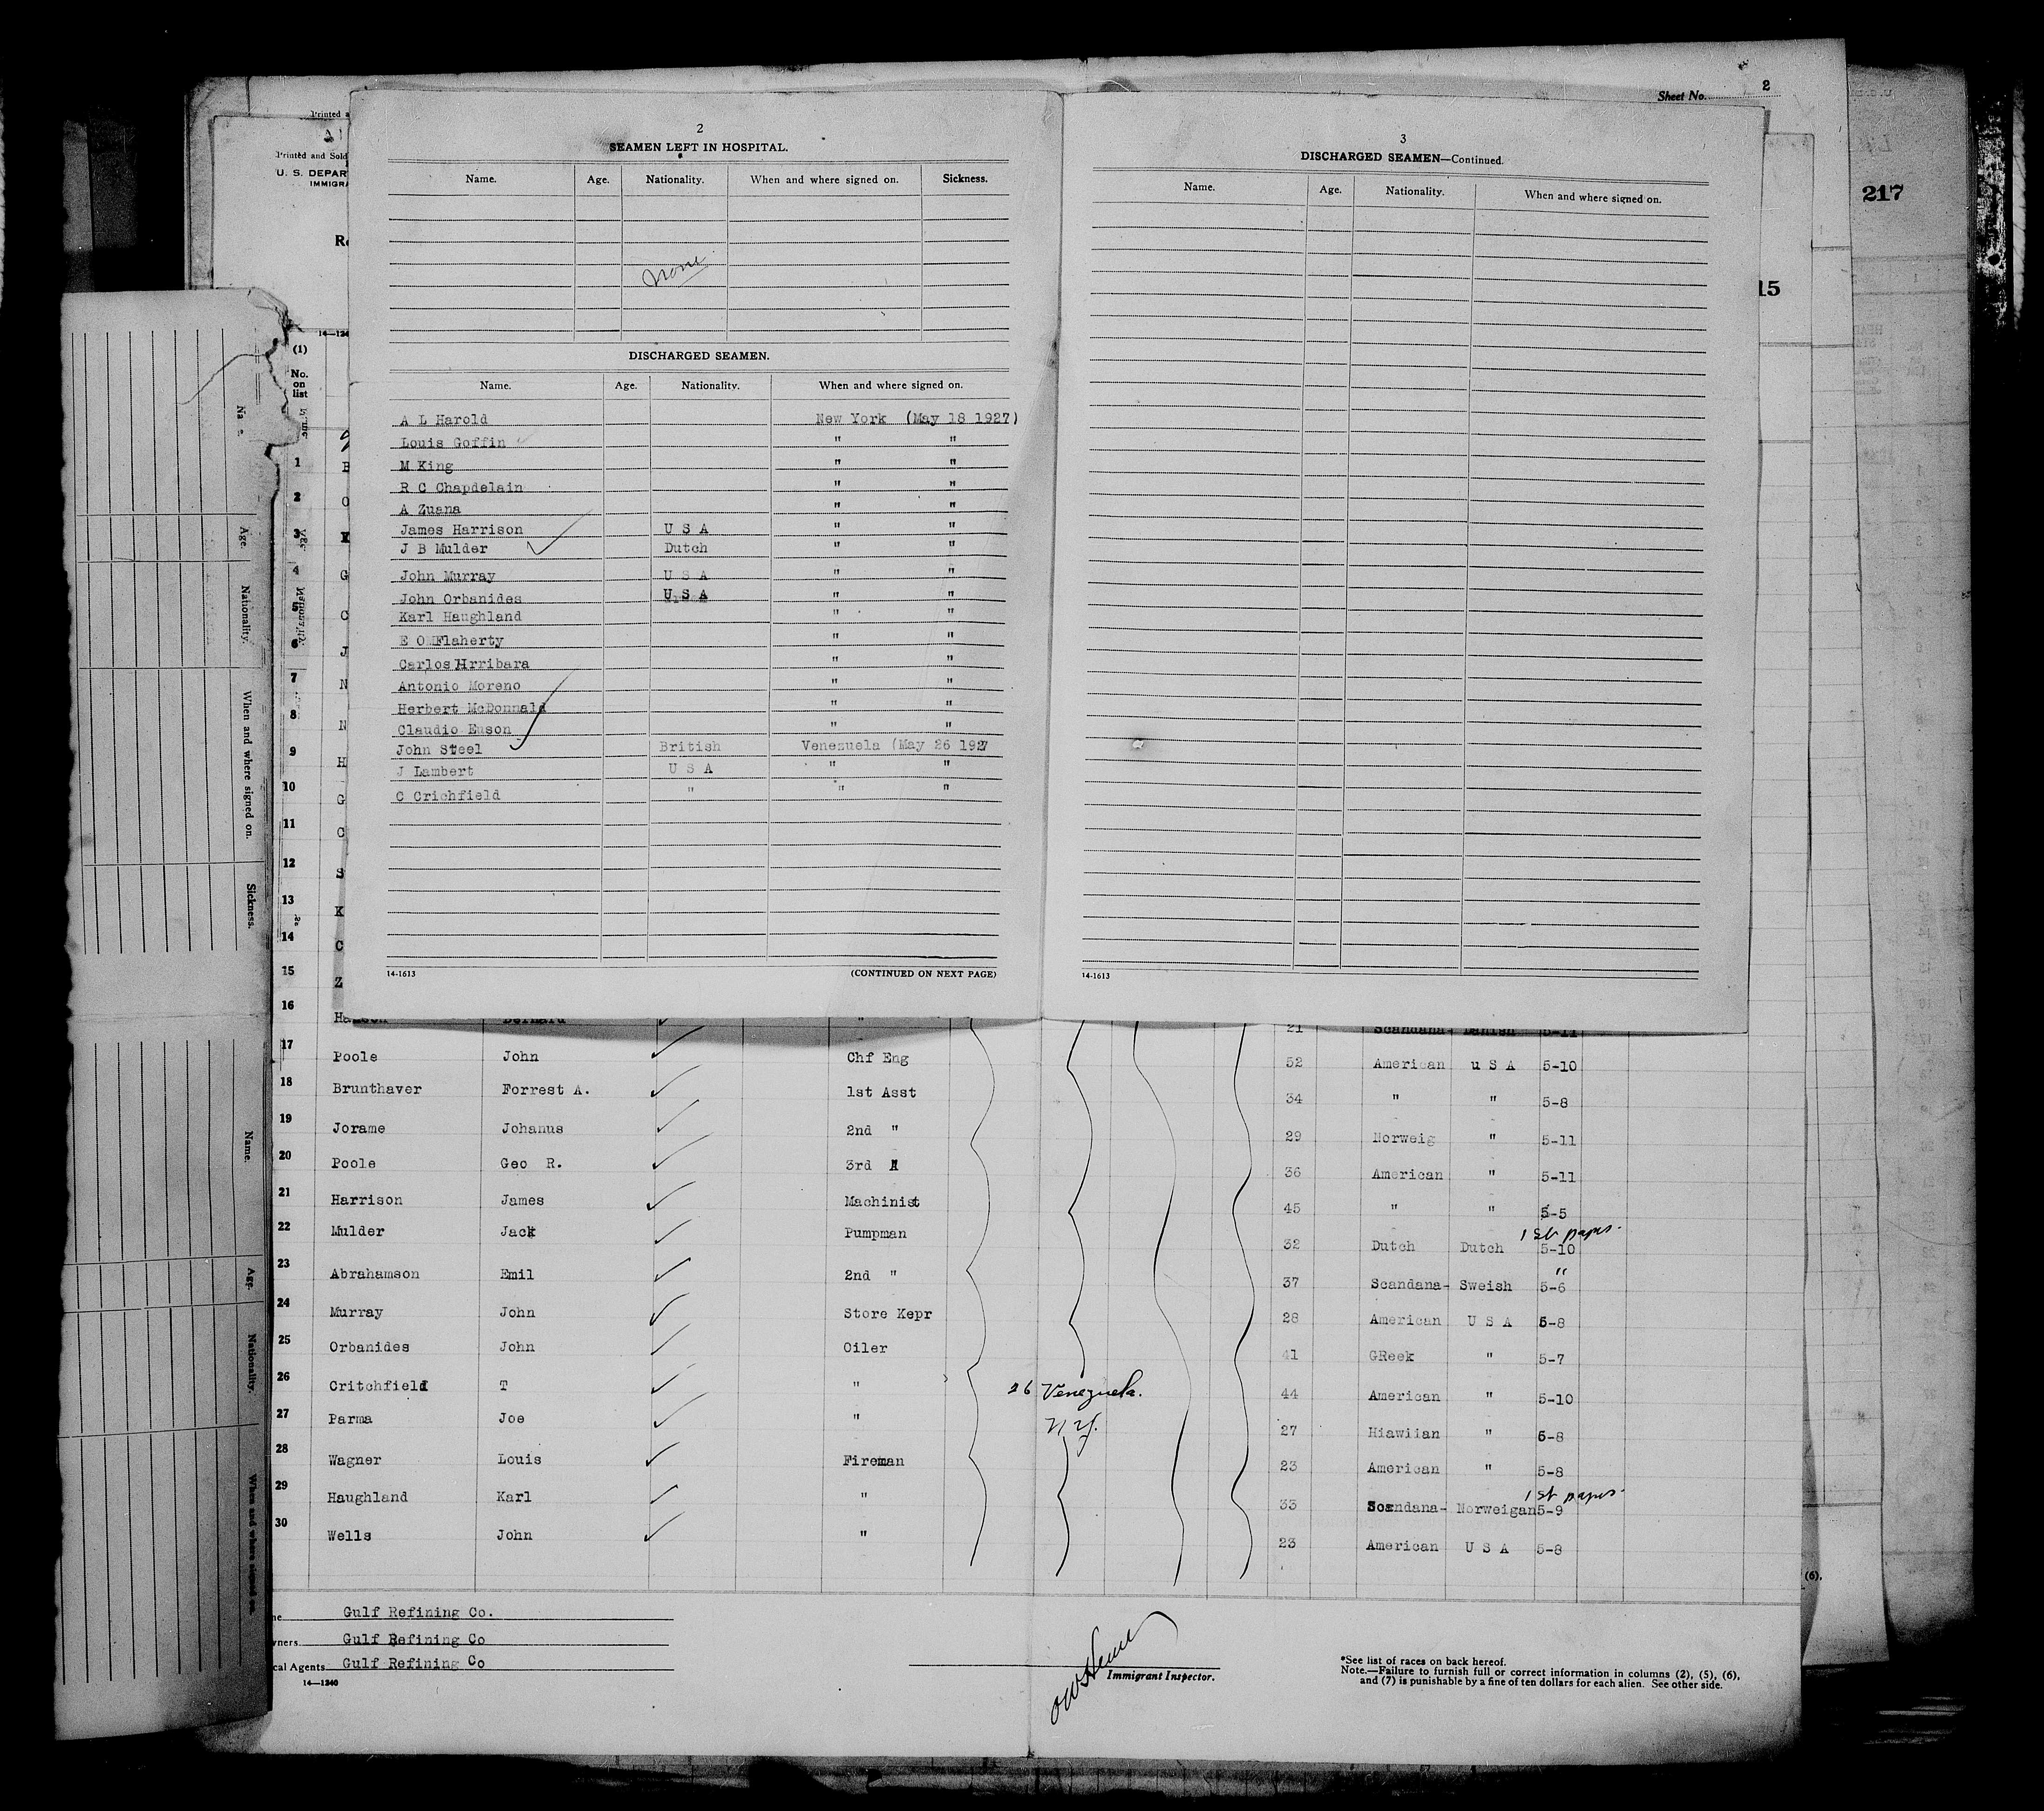 Sheet No. 2
2
SEAMEN LEFT IN HOSPITAL.
Name. Age. Nationality. When and where signed on. Sickness.
None
DISCHARGED SEAMEN.
Name. Age. Nationality. When and where signed on.
A L Harold New York (May 18 1927)
Louis Goffin " "
M King " "
R C Chapdelain " "
A Zuana " "
James Harrison U S A " "
J B Mulder Dutch " "
John Murray U S A " "
John Orbanides U S A " "
Karl Haughland " "
E O Flaherty " "
Carlos Hrribara " "
Antonio Moreno " "
Herbert McDonnald " "
Claudio Euson " "
John Steel British Venezuela (May 26 1927
J Lambert U S A " "
C Crichfield " " "
14-1613 (CONTINUED ON NEXT PAGE)
3
DISCHARGED SEAMEN—Continued.
Name. Age. Nationality. When and where signed on.
14-1613
217
15
Printed a
Printed and Sold
U. S. DEPAR
IMMIGRA
(1)
No.
on
list
1 B
2 O
3
4 G
5 C
6 J
7 N
8 N
9 H
10 G
11 C
12 S
13 K
14 C
15 Z
16 Bernard " 21 Scandana- Danish 5-11
17 Poole John Chf Eng 52 American u S A 5-10
18 Brunthaver Forrest A. 1st Asst 34 " " 5-8
19 Jorame Johanus 2nd " 29 Norweig " 5-11
20 Poole Geo R. 3rd 36 American " 5-11
21 Harrison James Machinist 45 " " 5-5
22 Mulder Jack Pumpman 32 Dutch Dutch 5-10 1st papers
23 Abrahamson Emil 2nd " 37 Scandana- Sweish 5-6 "
24 Murray John Store Kepr 28 American U S A 5-8
25 Orbanides John Oiler 41 GReek " 5-7
26 Critchfield T " 26 Venezuela. 44 American " 5-10
27 Parma Joe " N Y. 27 Hiawiian " 5-8
28 Wagner Louis Fireman 23 American " 5-8
29 Haughland Karl " 33 Scandana- Norweigan 5-9 1st papers
30 Wells John " 23 American U S A 5-8
Gulf Refining Co.
wners Gulf Refining Co
cal Agents Gulf Refining Co
14—1240
Immigrant Inspector.
*See list of races on back hereof.
Note.—Failure to furnish full or correct information in columns (2), (5), (6),
and (7) is punishable by a fine of ten dollars for each alien. See other side.
(6),
Age.
Nationality.
When and where signed on.
Sickness.
Name.
Age.
Nationality.
When and where signed on.